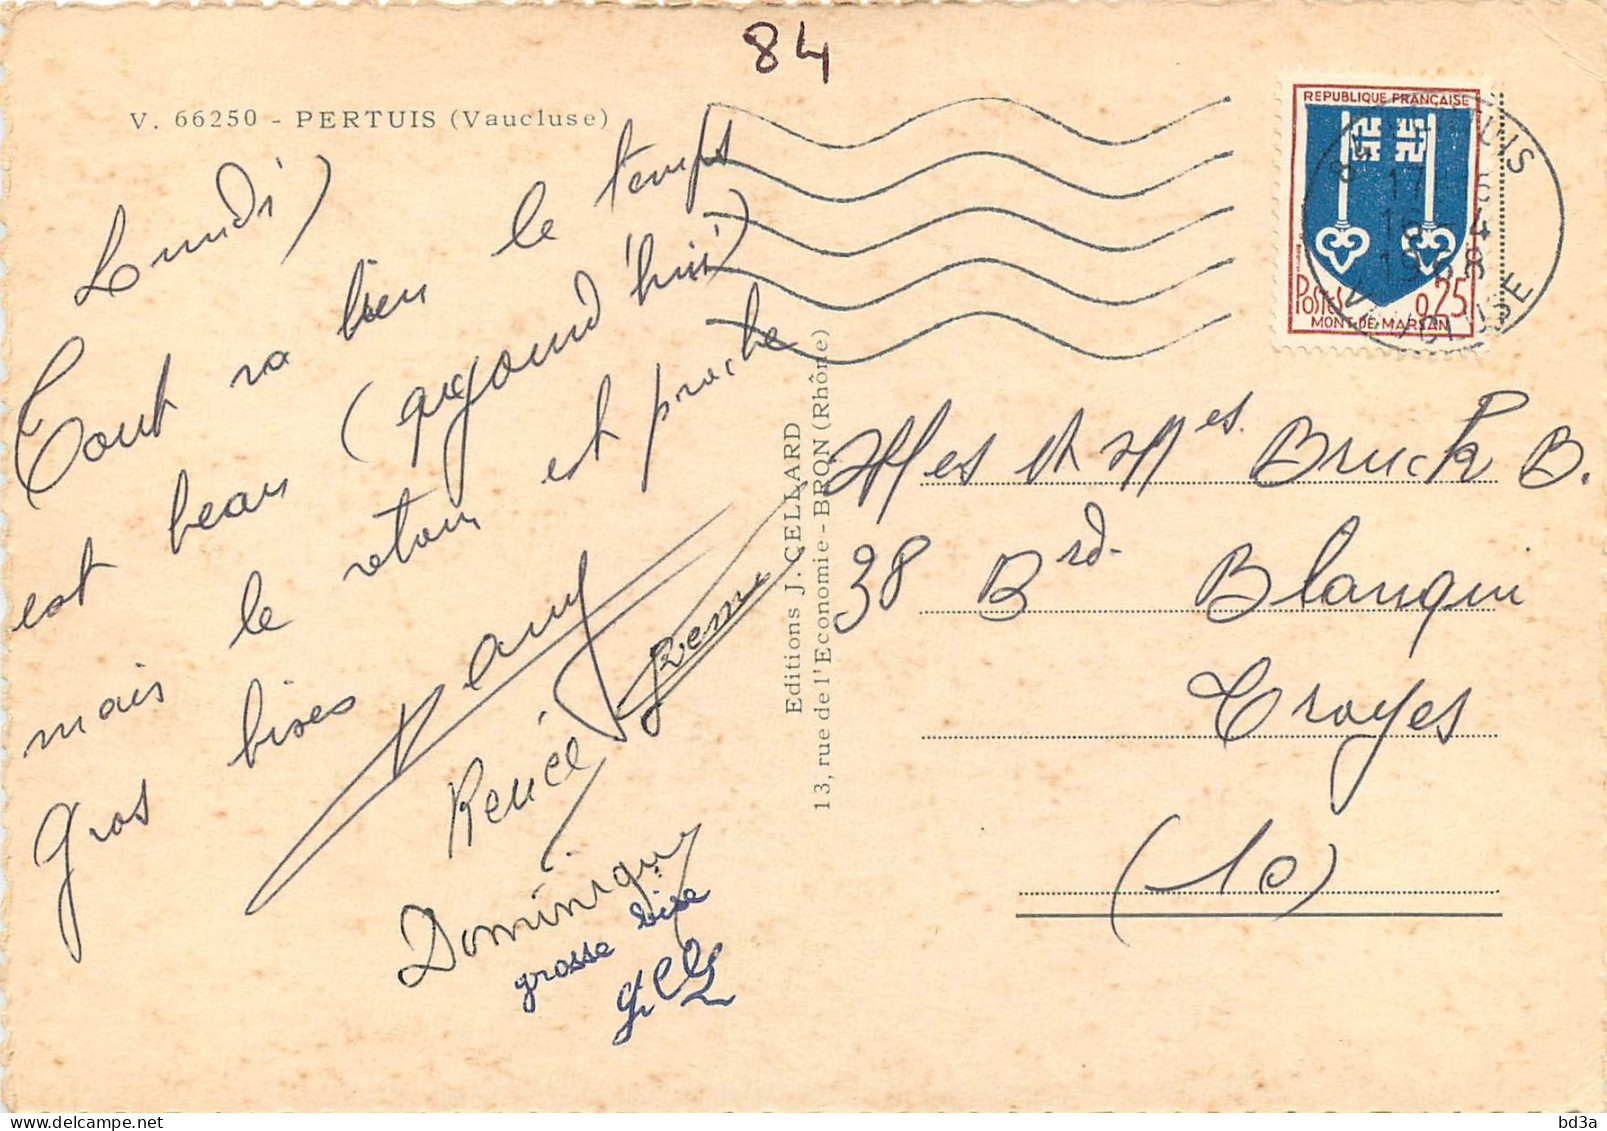 84
V. 66250 - PERTUIS (Vaucluse)
Lundi
Tout va bien le temps
est beau (aujourd'hui)
mais le retour est proche
Gros bises
Renée
Dominique
grosse bise
Editions J. CELLARD
13, rue de l'Economie - BRON (Rhône)
REPUBLIQUE FRANÇAISE
POSTES 0,25
MONT-DE-MARSAN
17
16 - 4
1968
VAUCLUSE
Mes et Mes. Bruck B.
38 Brd. Blanqui
Troyes
(10)
delcampe.net
bd3a